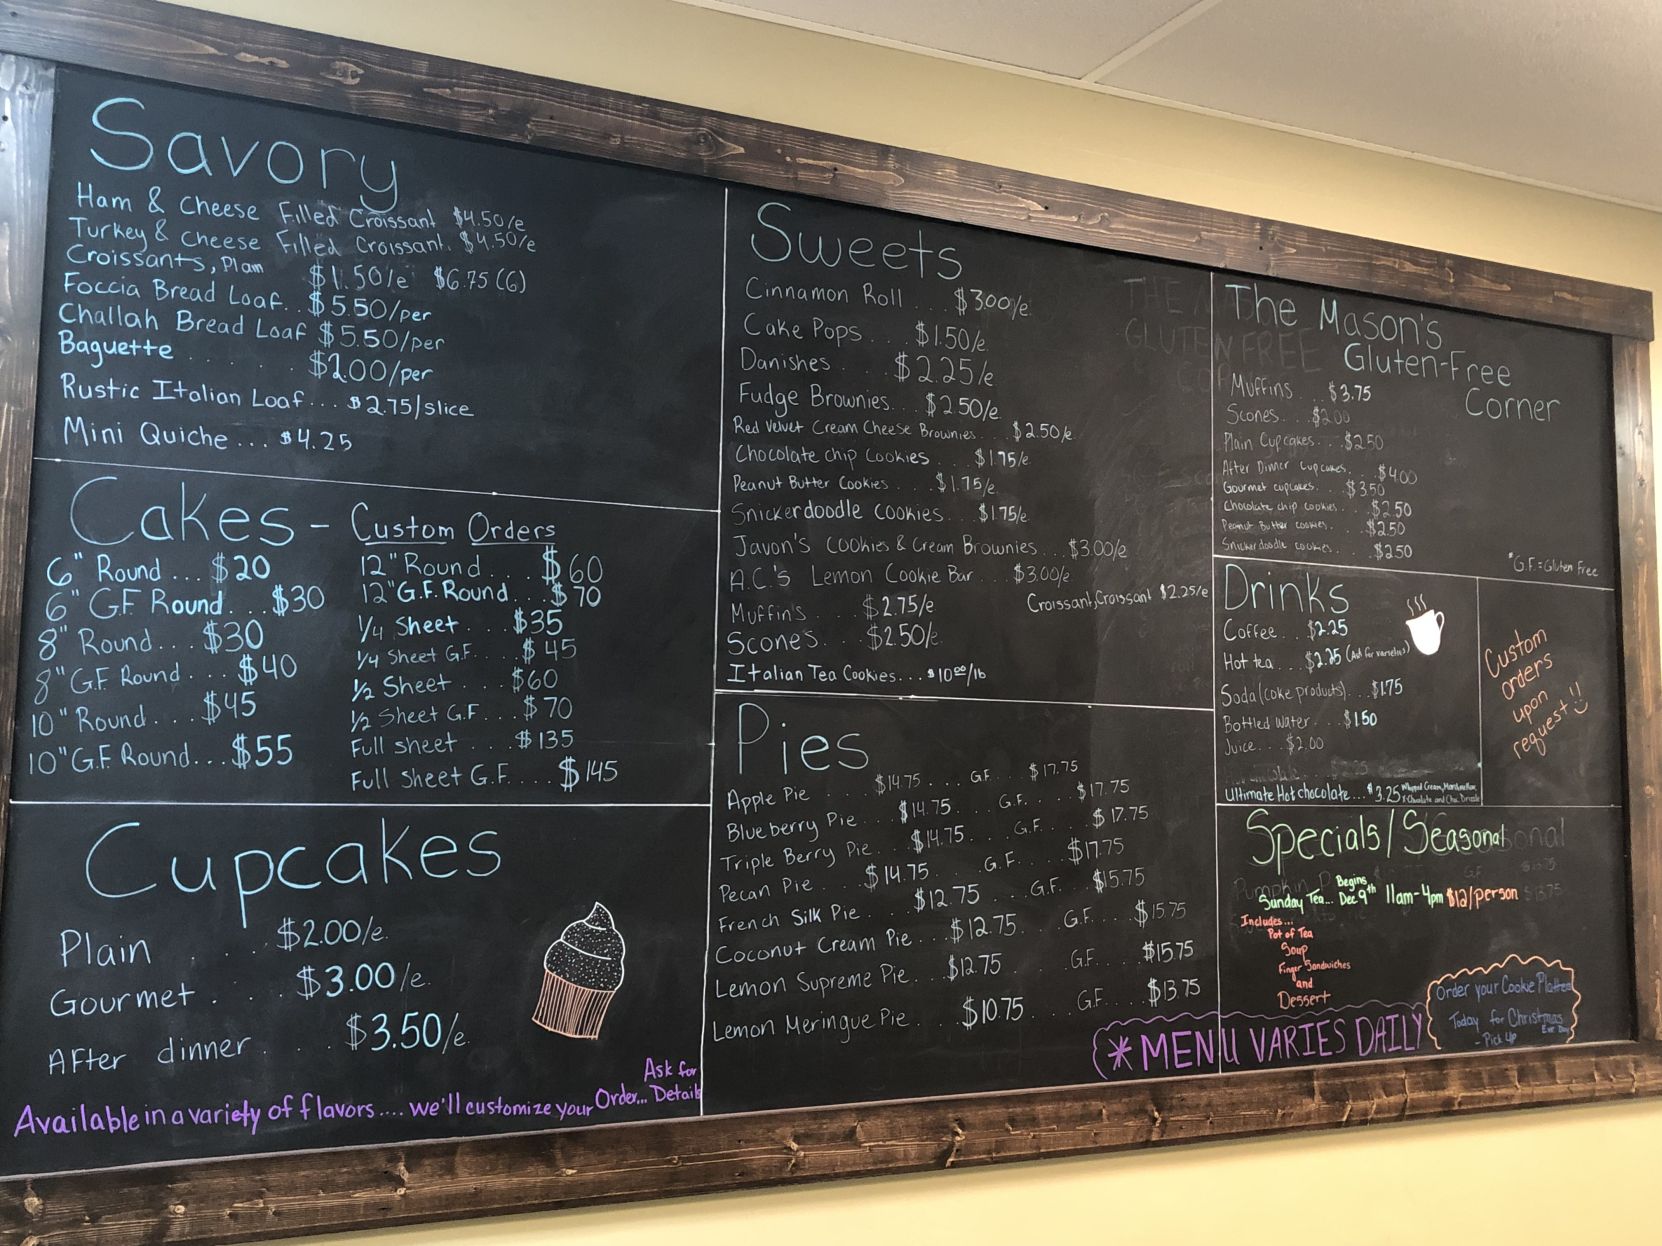 Savory
Ham & Cheese Filled Croissant $4.50/e
Turkey & Cheese Filled Croissant. $4.50/e
Croissants, Plain $1.50/e $6.75 (6)
Foccia Bread Loaf.. $5.50/per
Challah Bread Loaf $5.50/per
Baguette . . . . $2.00/per
Rustic Italian Loaf... $2.75/slice
Mini Quiche... $4.25
Cakes - Custom Orders
6" Round... $20
6" G.F. Round... $30
8" Round... $30
8" G.F. Round... $40
10" Round... $45
10" G.F. Round... $55
12" Round... $60
12" G.F. Round... $70
1/4 Sheet... $35
1/4 Sheet G.F.... $45
1/2 Sheet... $60
1/2 Sheet G.F... $70
Full sheet... $135
Full Sheet G.F.... $145
Cupcakes
Plain . . . $2.00/e.
Gourmet . . . $3.00/e.
After dinner . . . $3.50/e.
Available in a variety of flavors.... we'll customize your Order... Ask for Details
Sweets
Cinnamon Roll ... $3.00/e.
Cake Pops... $1.50/e.
Danishes... $2.25/e
Fudge Brownies... $2.50/e.
Red Velvet Cream Cheese Brownies... $2.50/e.
Chocolate chip Cookies... $1.75/e.
Peanut Butter Cookies... $1.75/e.
Snickerdoodle Cookies... $1.75/e.
Javon's Cookies & Cream Brownies... $3.00/e
A.C.'s Lemon Cookie Bar... $3.00/e
Croissant, Croissant $2.25/e
Muffins... $2.75/e
Scones... $2.50/e.
Italian Tea Cookies... $10.00/lb
Pies
Apple Pie .... $14.75.... G.F. ... $17.75
Blueberry Pie... $14.75.... G.F.... $17.75
Triple Berry Pie... $14.75.... G.F.... $17.75
Pecan Pie... $14.75.... G.F.... $17.75
French Silk Pie... $12.75.... G.F.... $15.75
Coconut Cream Pie... $12.75.... G.F.... $15.75
Lemon Supreme Pie... $12.75.... G.F.... $15.75
Lemon Meringue Pie... $10.75.... G.F.... $13.75
The Mason's
Gluten-Free
Corner
Muffins... $3.75
Scones... $2.00
Plain Cupcakes... $2.50
After Dinner Cupcakes... $4.00
Gourmet cupcakes... $3.50
Chocolate chip cookies... $2.50
Peanut Butter cookies... $2.50
Snickerdoodle cookies... $2.50
*G.F. = Gluten Free
Drinks
Coffee... $2.25
Hot tea... $2.25 (Ask for varieties)
Soda (coke products)... $1.75
Bottled Water... $1.50
Juice... $2.00
Ultimate Hot chocolate... $3.25 Whipped Cream, Marshmallow,
Chocolate and Choc. Drizzle
Custom
orders
upon
request!!
Specials/Seasonal
Sunday Tea... Begins Dec 9th 11am-4pm $12/person
Includes...
Pot of Tea
Soup
Finger Sandwiches
and
Dessert
Order your Cookie Platter
Today for Christmas
Eve Day
- Pick up
*MENU VARIES DAILY